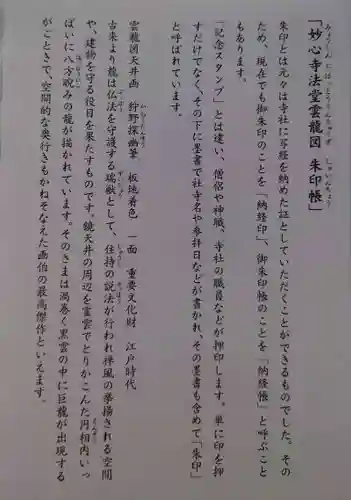 「妙心寺法堂雲龍図 朱印帳」
みょうしんじはっとううんりゅうず しゅいんちょう
朱印とは元々は寺社に写経を納めた証としていただくことができるものでした。その
ため、現在でも御朱印のことを「納経印」、御朱印帳のことを「納経帳」と呼ぶこと
もあります。
「記念スタンプ」とは違い、僧侶や神職、寺社の職員などが押印します。単に印を押
すだけでなく、その下に墨書で社寺名や参拝日などが書かれ、その墨書も含めて「朱印」
と呼ばれています。
雲龍図天井画 狩野探幽筆 板地着色 一面 重要文化財 江戸時代
古来より龍は仏法を守護する瑞獣として、住持の説法が行われ禅風の挙揚される空間
や、建物を守る役目を果たすものです。鏡天井の周辺を霊雲でとりかこんだ円相内いっ
ぱいに八方睨みの龍が描かれています。そのさまは渦巻く黒雲の中に巨龍が出現する
がごときで、空間的な奥行きもかねそなえた画伯の最高傑作といえます。